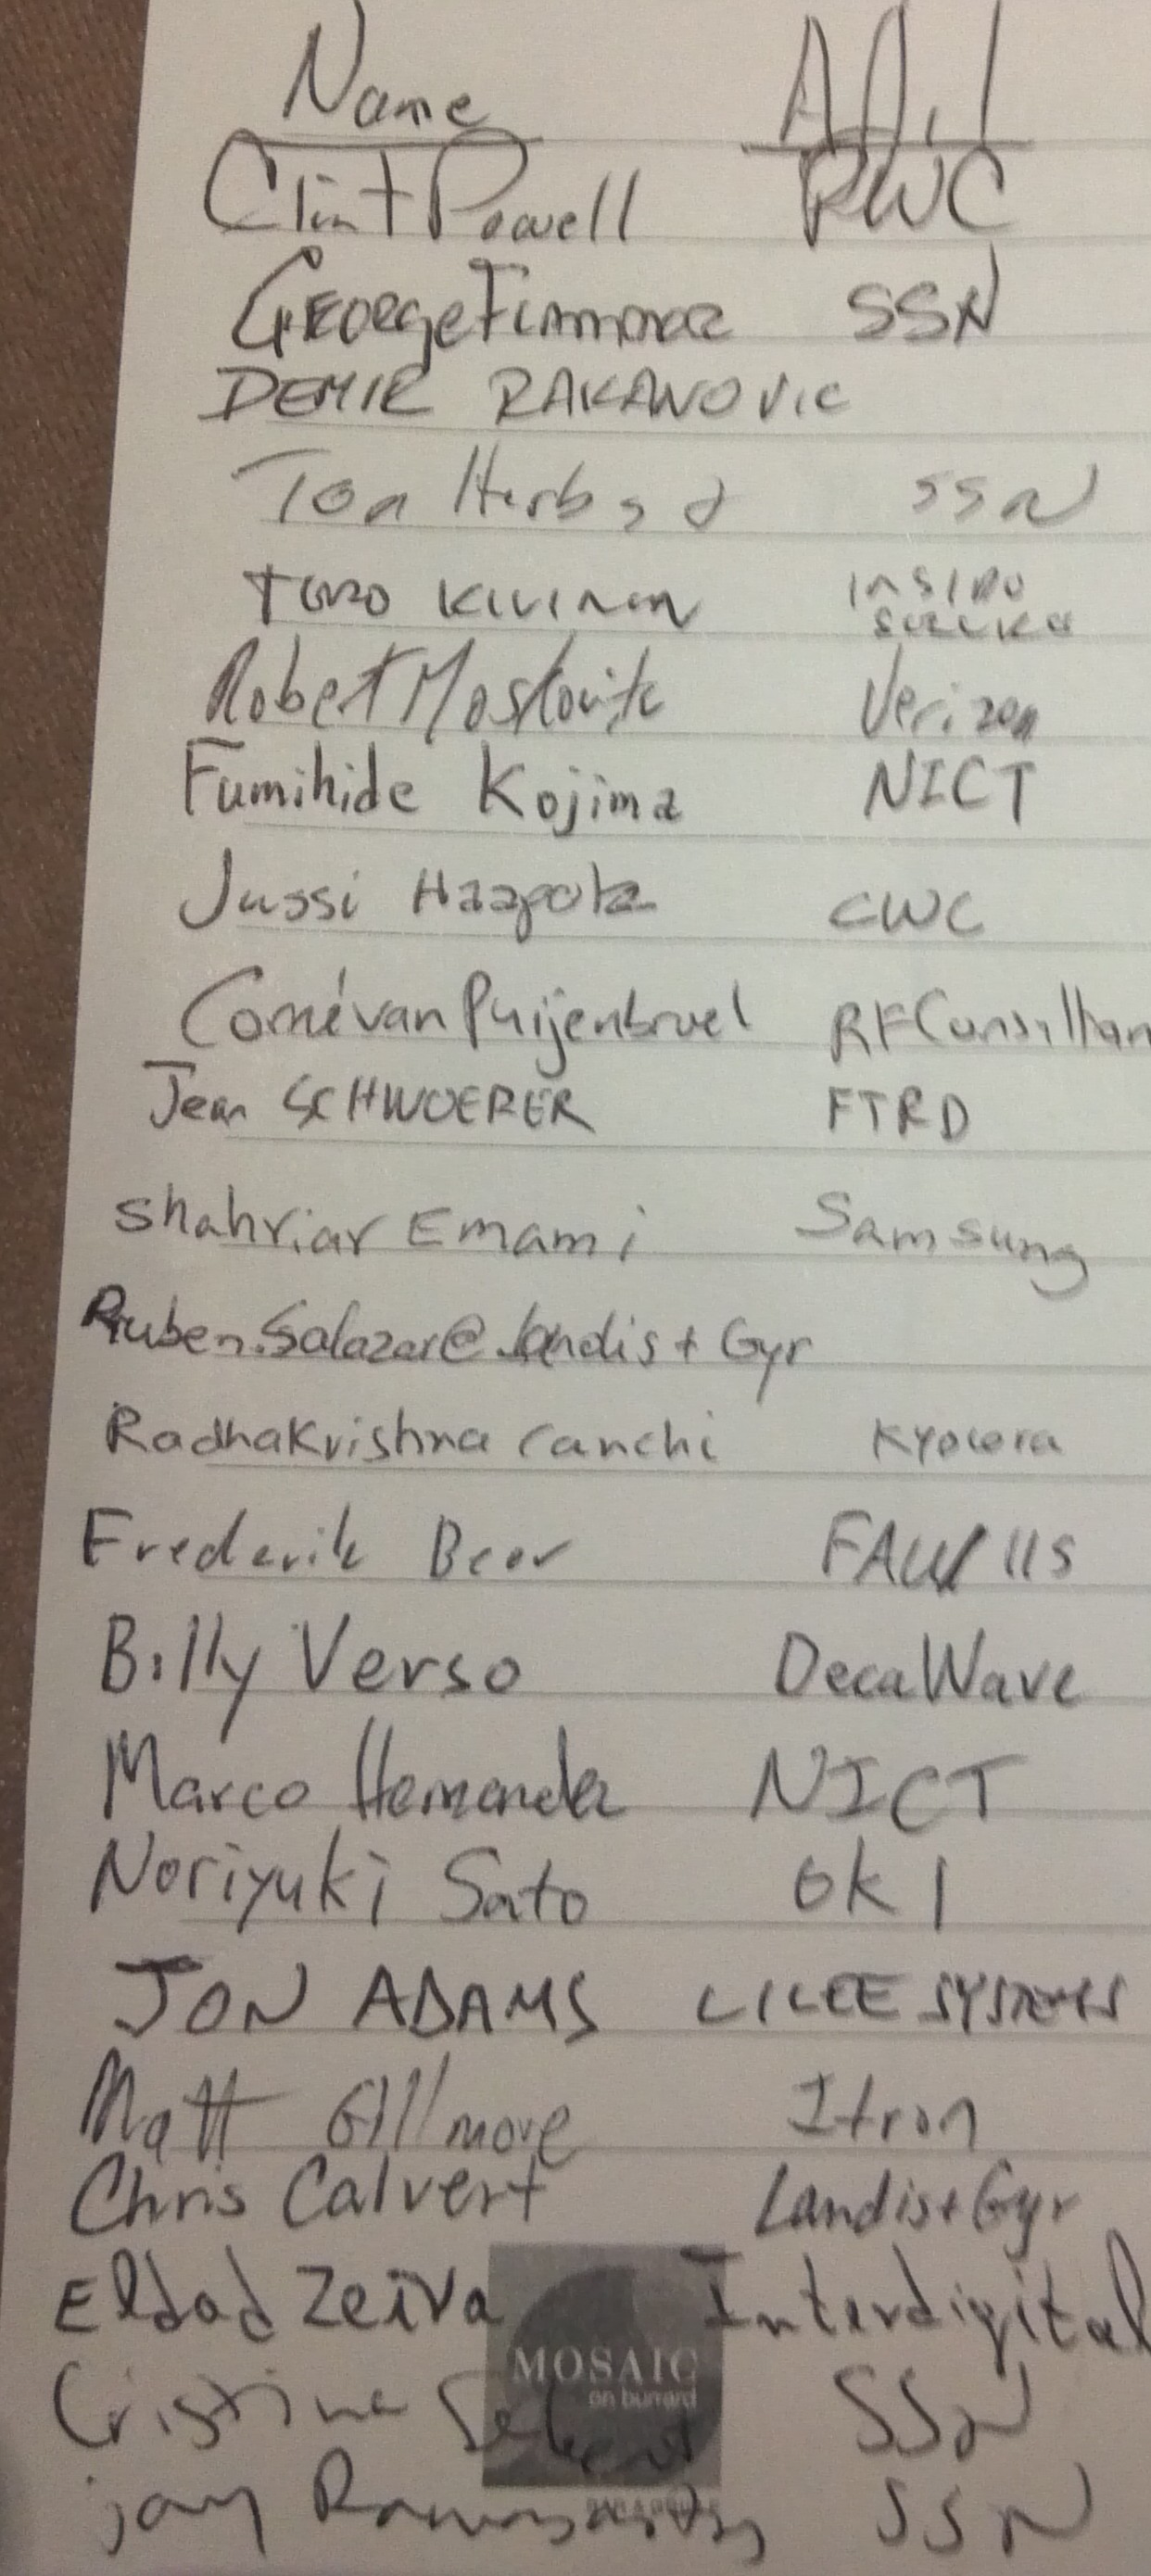 Name Afil
Clint Powell RWC
George Flammer SSN
DEMIR RAKANOVIC
Tom Herbst SSN
Tero Kivinen INSIDE
SECURE
Robert Moskowitz Verizon
Fumihide Kojima NICT
Jussi Haapola CWC
Corné van Puijenbroek RF Consultan
Jean SCHWOERER FTRD
Shahriar Emami Samsung
Ruben.Salazar@Landis+Gyr
Radhakrishna Canchi Kyocera
Frederik Beer FAU/IIS
Billy Verso DecaWave
Marco Hernandez NICT
Noriyuki Sato OKI
JON ADAMS LILEE SYSTEMS
Matt Gillmore Itron
Chris Calvert Landis+Gyr
Eldad Zeira Interdigital
MOSAIC
on burrard
Cristina SSN
jay SSN